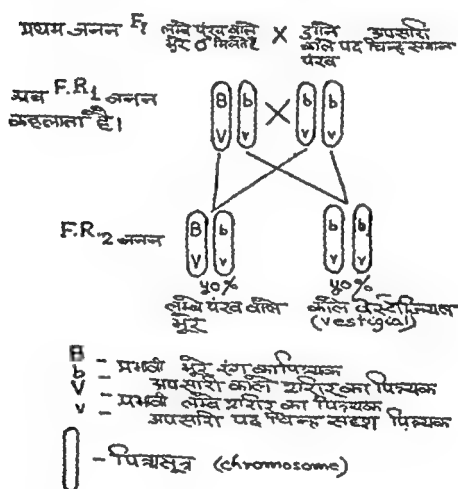 प्रथम जनन F1 लम्बे पंख वाले × दोनों अपसारी
भूरे काले पद चिन्ह समान
पंख
अब F.R.1 जनन
कहलाता है।
B b × b b
V v v v
F.R.2 जनन
B b b b
V v v v
५०% ५०%
लम्बे पंख वाले काले वेस्टीजियल
भूरे (vestigial)
B - प्रभावी भूरे रंग का पित्र्यक
b - अपसारी काले शरीर का पित्र्यक
V - प्रभावी लम्बे शरीर का पित्र्यक
v - अपसारी पद चिन्ह सदृश पित्र्यक
- पित्र्यसूत्र (chromosome)